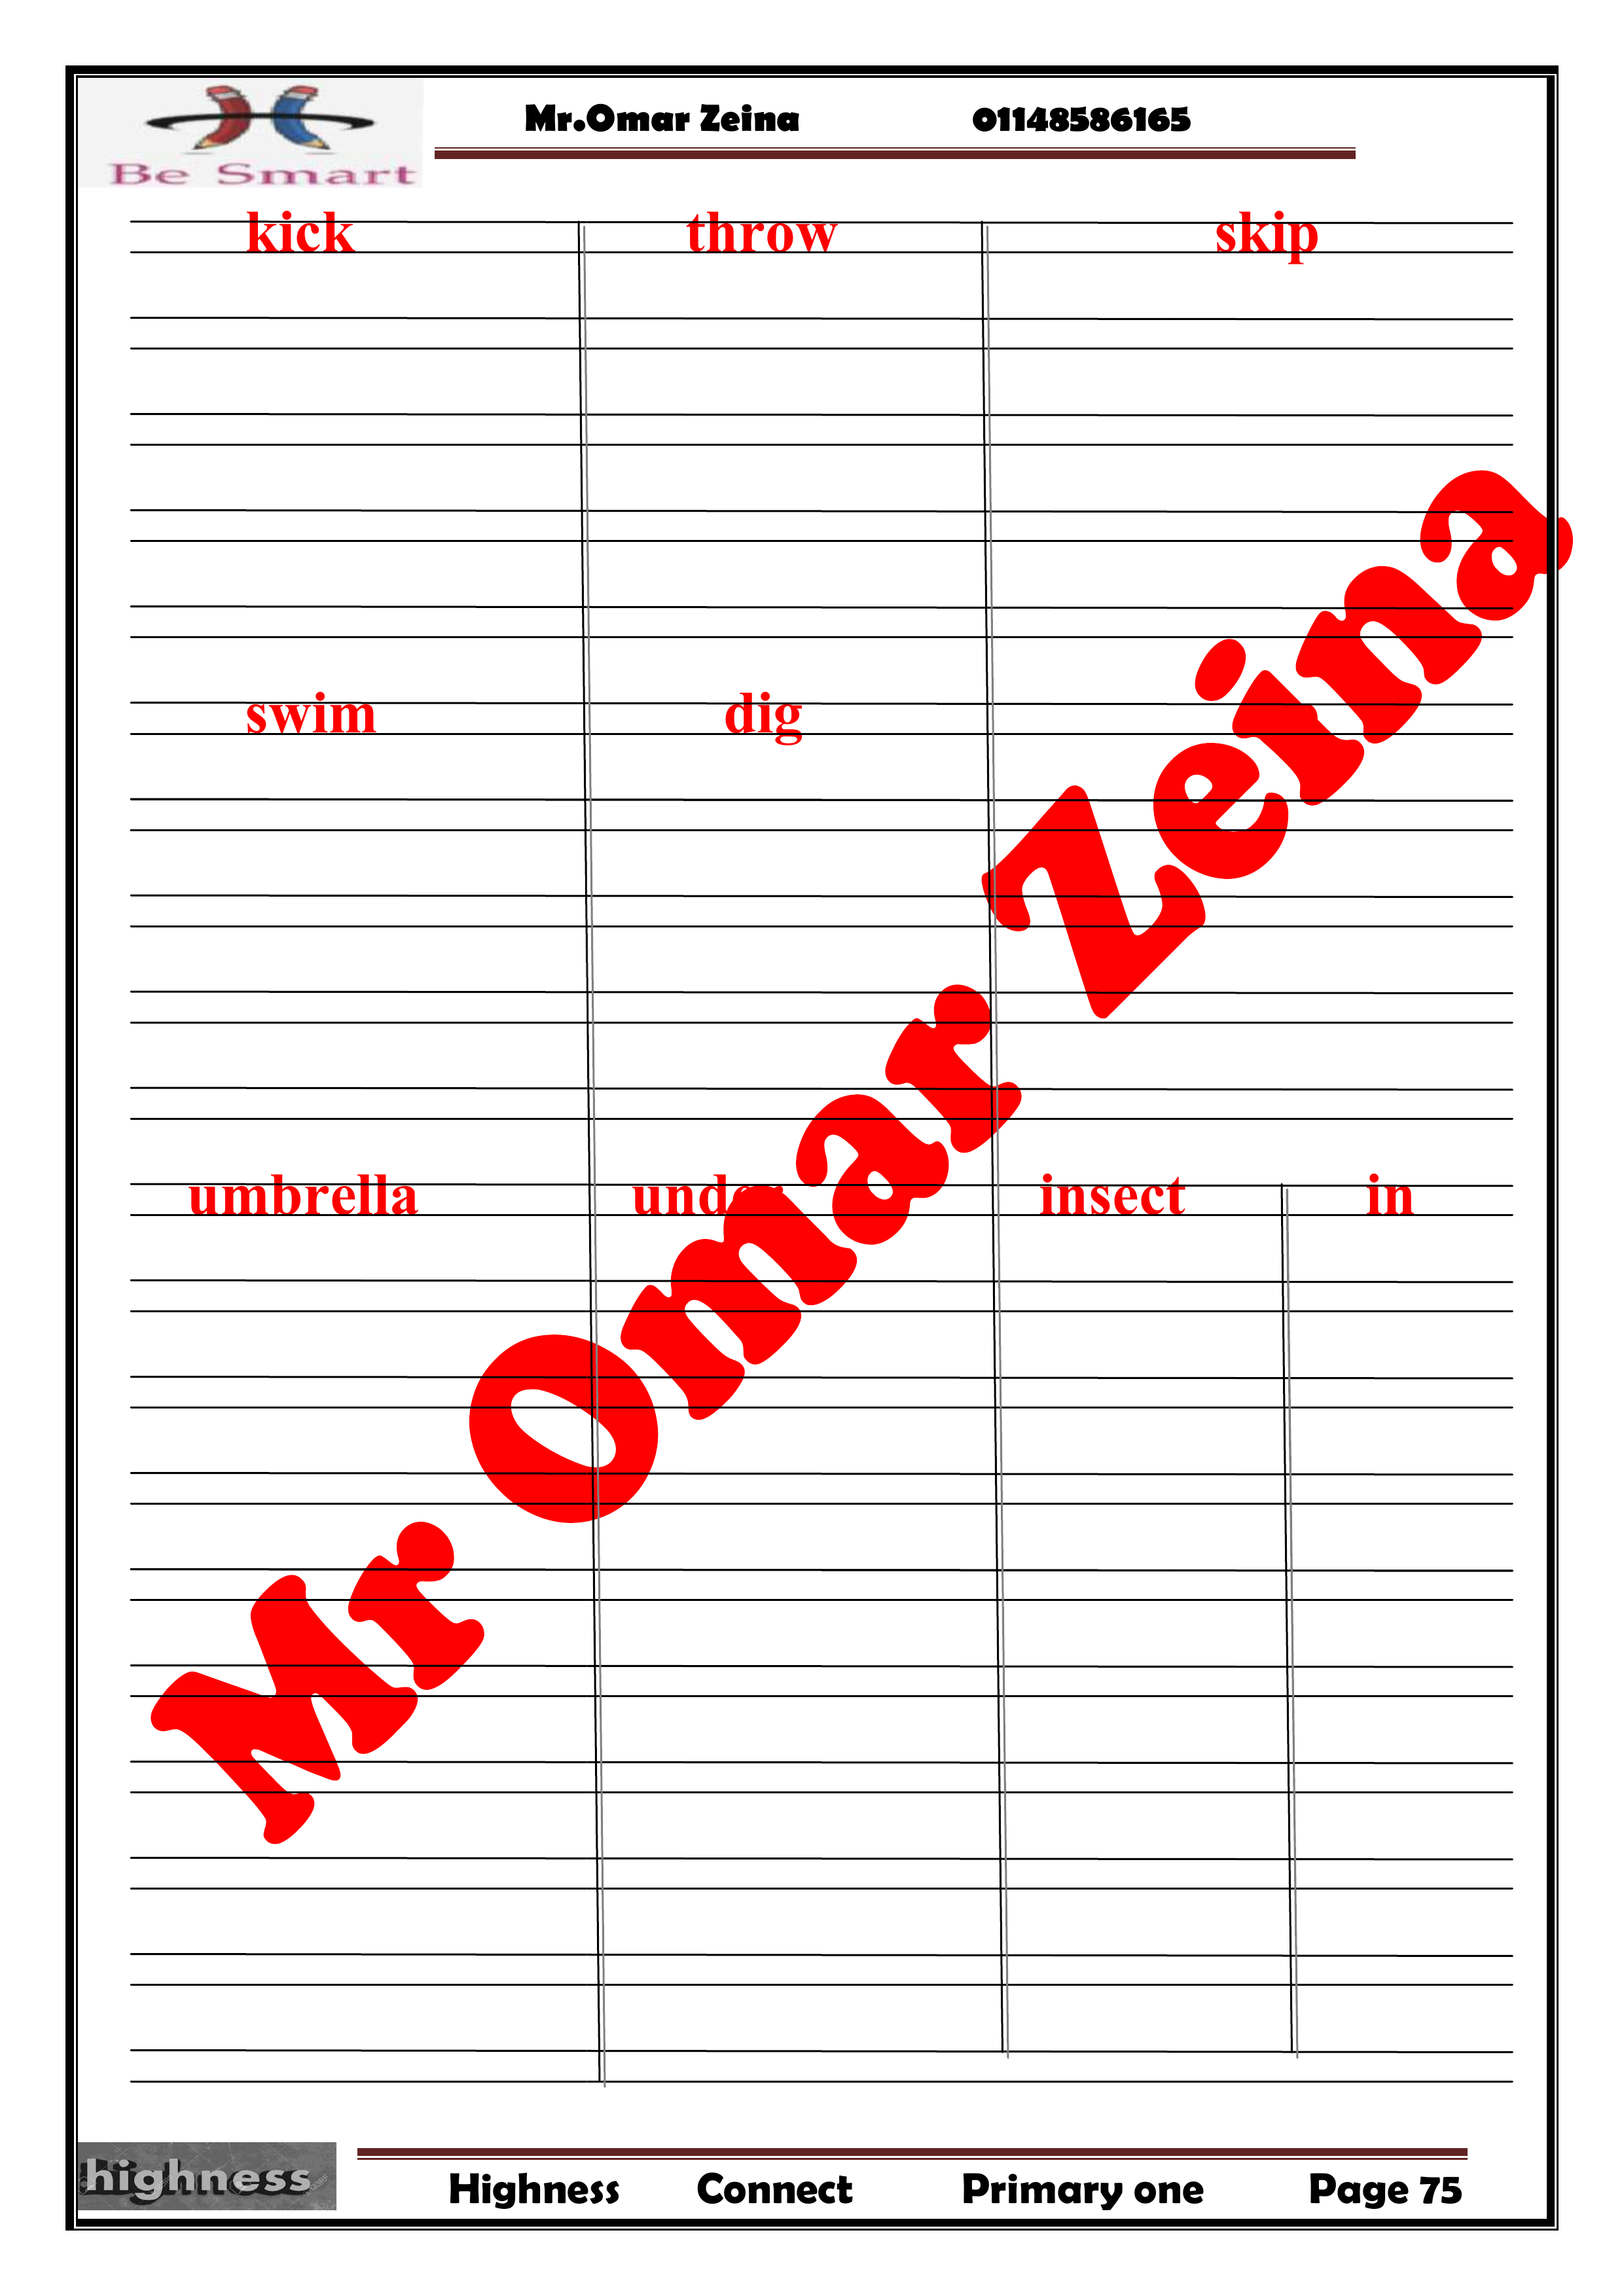 Mr.Omar Zeina 01148586165
Be Smart
kick throw skip
swim dig
umbrella under insect in
Mr Omar Zeina
highness
Highness Connect Primary one Page 75